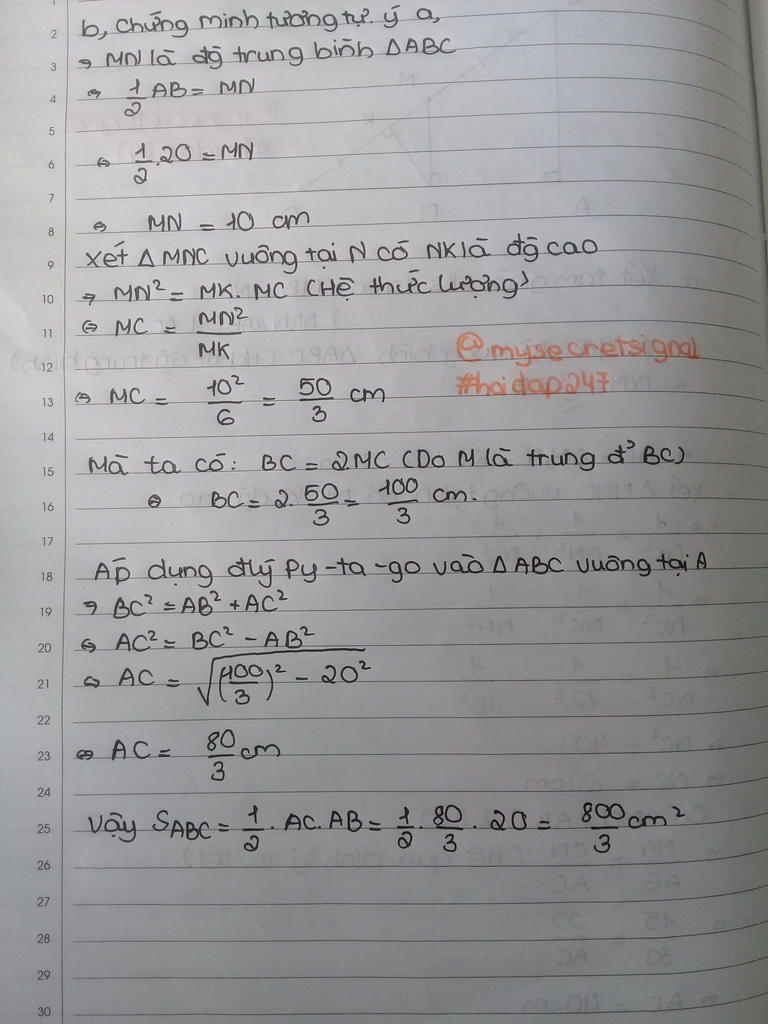 b, Chứng minh tương tự ý a,
⇒ MN là đg trung bình ΔABC
⇔ 1/2 AB = MN
⇔ 1/2 . 20 = MN
⇔ MN = 10 cm
Xét ΔMNC vuông tại N có NK là đg cao
⇒ MN² = MK. MC (Hệ thức lượng)
⇔ MC = MN²/MK
⇔ MC = 10²/6 = 50/3 cm
@mysecretsignal
#hoidap247
Mà ta có: BC = 2MC (Do M là trung đ' BC)
⇔ BC = 2. 50/3 = 100/3 cm.
Áp dụng đlý Py-ta-go vào ΔABC vuông tại A
⇒ BC² = AB² + AC²
⇔ AC² = BC² - AB²
⇔ AC = √((100/3)² - 20²)
⇔ AC = 80/3 cm
Vậy SABC = 1/2 . AC. AB = 1/2 . 80/3 . 20 = 800/3 cm²
1
2
3
4
5
6
7
8
9
10
11
12
13
14
15
16
17
18
19
20
21
22
23
24
25
26
27
28
29
30